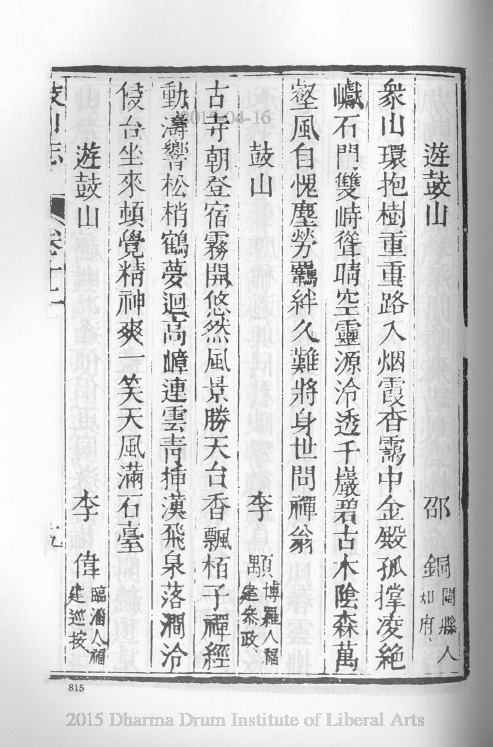 遊鼓山 邵銅閩縣人知府
衆山環抱樹重重路入烟霞杳靄中金殿孤撐凌絶
巘石門雙峙聳晴空靈源冷透千巖碧古木陰森萬
壑風自愧塵勞羈絆久難將身世問禪翁
鼓山 李顒博羅人福建參政
古寺朝登宿霧開悠然風景勝天台香飄栢子禪經
動濤響松梢鶴夢迴高嶂連雲靑揷漢飛泉落澗冷
侵台坐來頓覺精神爽一笑天風滿石臺
遊鼓山 李偉臨淄人福建巡按
鼓山志 卷十二
815
2015 Dharma Drum Institute of Liberal Arts